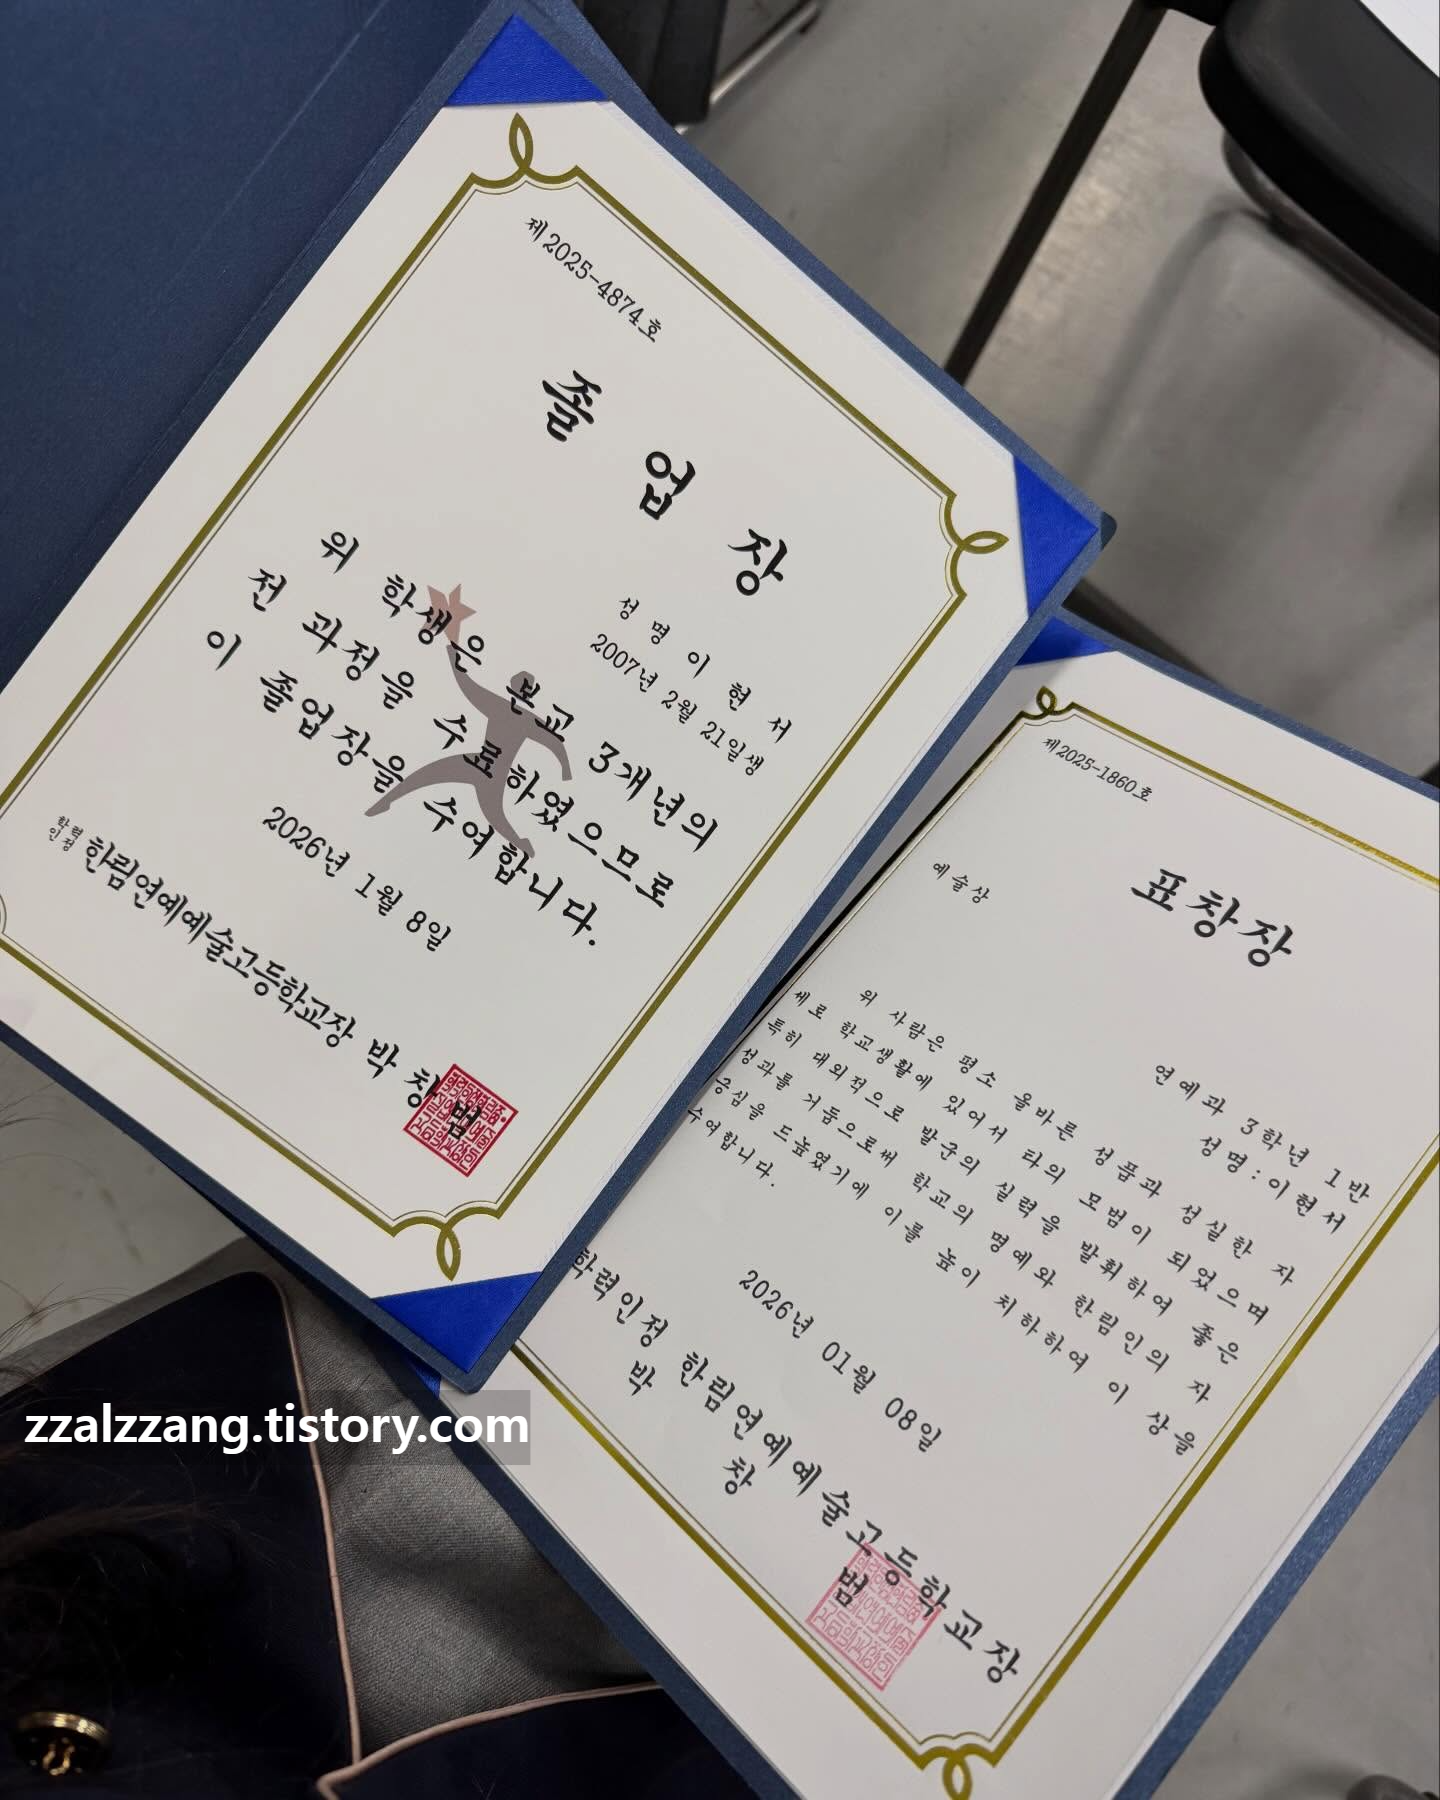 제2025-4874호
졸 업 장
성 명 이 현 서
2007년 2월 21일생
위 학생은 본교 3개년의
전 과정을 수료하였으므로
이 졸업장을 수여합니다.
2026년 1월 8일
학력
인정 한림연예예술고등학교장 박 창 범
제2025-1860호
표창장
예술상
연예과 3학년 1반
성명:이현서
위 사람은 평소 올바른 성품과 성실한 자
세로 학교생활에 있어서 타의 모범이 되었으며
특히 대외적으로 발군의 실력을 발휘하여 좋은
성과를 거둠으로써 학교의 명예와 한림인의 자
긍심을 드높였기에 이를 높이 치하하여 이 상을
수여합니다.
2026년 01월 08일
학력인정 한림연예예술고등학교장
박 창 범
zzalzzang.tistory.com